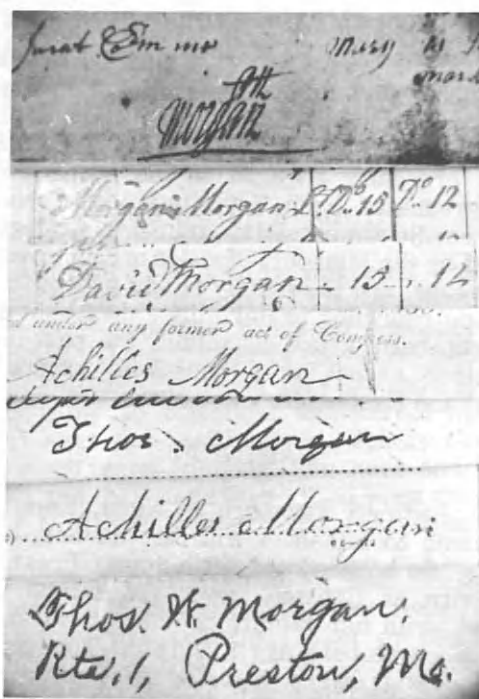 Morgan
Morgan Morgan Lt. Do 15 Do 12
David Morgan 15 12
under any former act of Congress.
Achilles Morgan
Thos. Morgan
Achilles Morgan
Thos. W. Morgan.
Rte. 1, Preston, Mo.